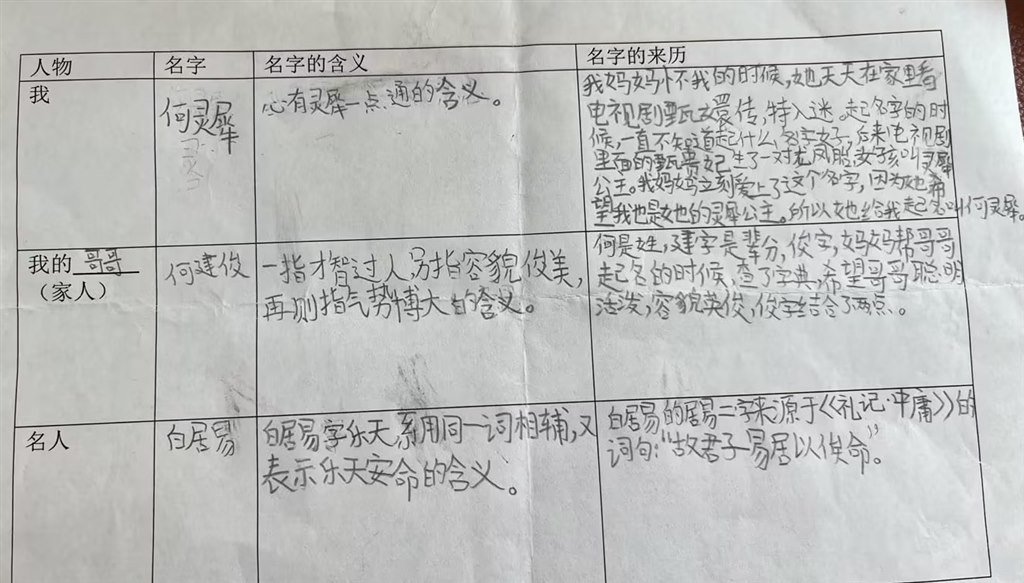 人物 名字 名字的含义 名字的来历
我 何灵犀 心有灵犀一点通的含义。
我妈妈怀我的时候,她天天在家里看
电视剧甄嬛传,特入迷。起名字的时
候,一直不知道起什么名字好,后来电视剧
里面的甄贵妃生了一对龙凤胎,女孩叫灵犀
公主。我妈妈立刻爱上了这个名字,因为她希
望我也是她的灵犀公主。所以她给我起名叫何灵犀。
我的哥哥
(家人)
何建俊
一指才智过人,另指容貌俊美,
再则指气势博大的含义。
何是姓,建字是辈分,俊字,妈妈帮哥哥
起名的时候,查了字典,希望哥哥聪明
活泼,容貌英俊,俊字结合了两点。
名人 白居易
白居易字乐天,系用同一词相辅,又
表示乐天安命的含义。
白居易的居易二字来源于《礼记·中庸》的
词句:“故君子易居以俟命。”